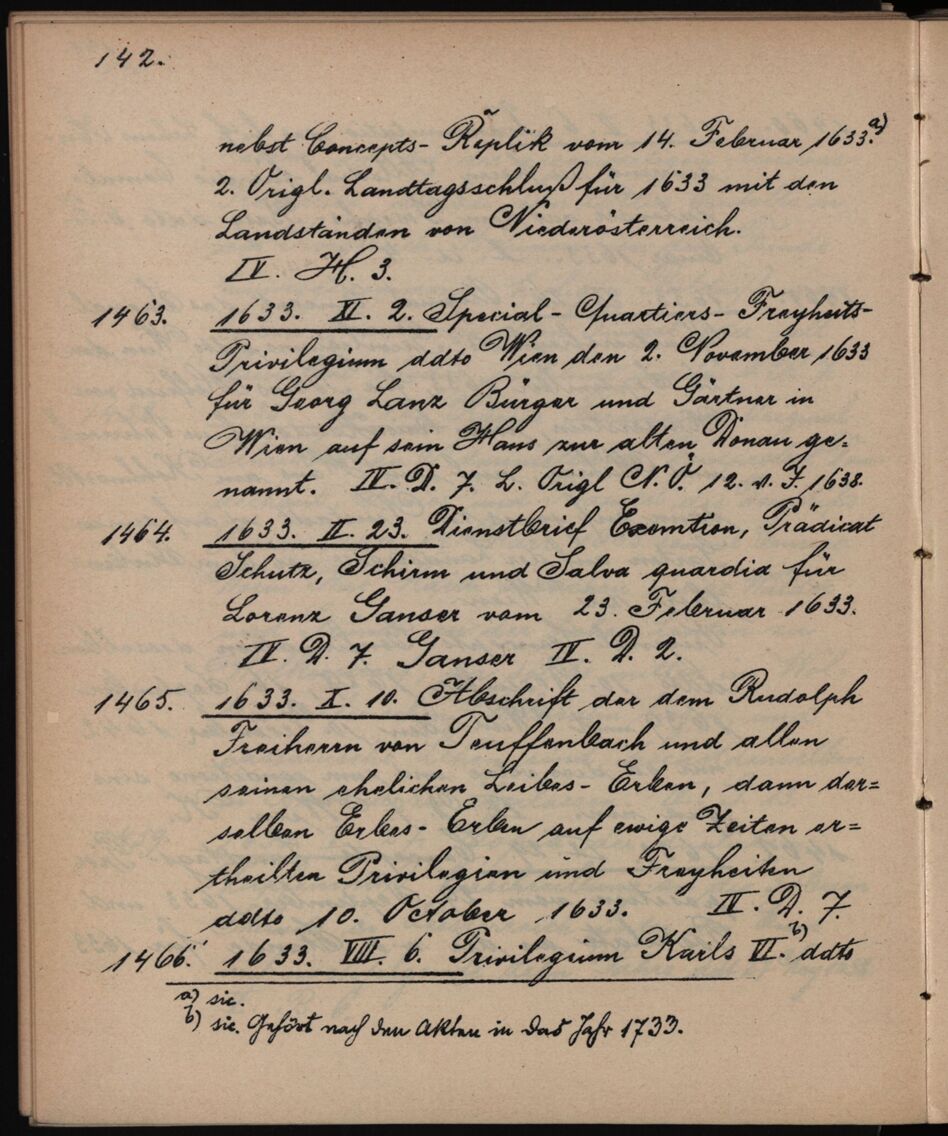 142.
nebst Concepts-Replik vom 14. Februar 1633.a)
2. Origl. Landtagsschluß für 1633 mit den
Landständen von Niederösterreich.
IV. H. 3.
1463. 1633. XI. 2. Special-Quartiers-Freyheits-
Privilegium ddto Wien den 2. November 1633
für Georg Lanz Bürger und Gärtner in
Wien auf sein Haus zur alten Donau ge=
nannt. IV. D. 7. L. Origl N.Ö. 12. v. J. 1638.
1464. 1633. II. 23. Dienstbrief Exemtion, Prädicat
Schutz, Schirm und Salva quardia für
Lorenz Ganser vom 23. Februar 1633.
IV. D. 7. Ganser IV. D. 2.
1465. 1633. X. 10. Abschrift der dem Rudolph
Freiherrn von Teuffenbach und allen
seinen ehelichen Leibes-Erben, dann der=
selben Erbes-Erben auf ewige Zeiten er=
theilten Privilegien und Freyheiten
ddto 10. October 1633. IV. D. 7.
1466. 1633. VIII. 6. Privilegium Karls VI.b) ddto
a) sic.
b) sic. Gehört nach den Akten in das Jahr 1733.